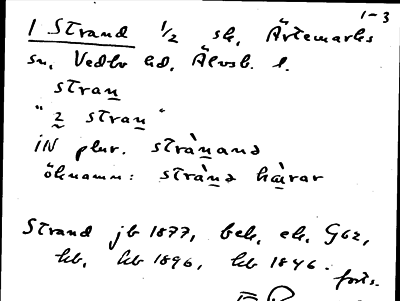 1-3
1 Strand 1/2 sk, Ärtemarks
sn, Vedbo hd, Älvsb. l.
stran̲
"z̰ stran̲"
iN plur. stràn̲ana
öknamn: stràn̲a hàrar
Strand jb 1877, bek, ek, G62,
kb, kb 1896, kb 1846. forts.